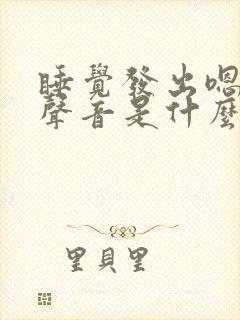 睡覺發出嗯
聲音是什麼
里貝里